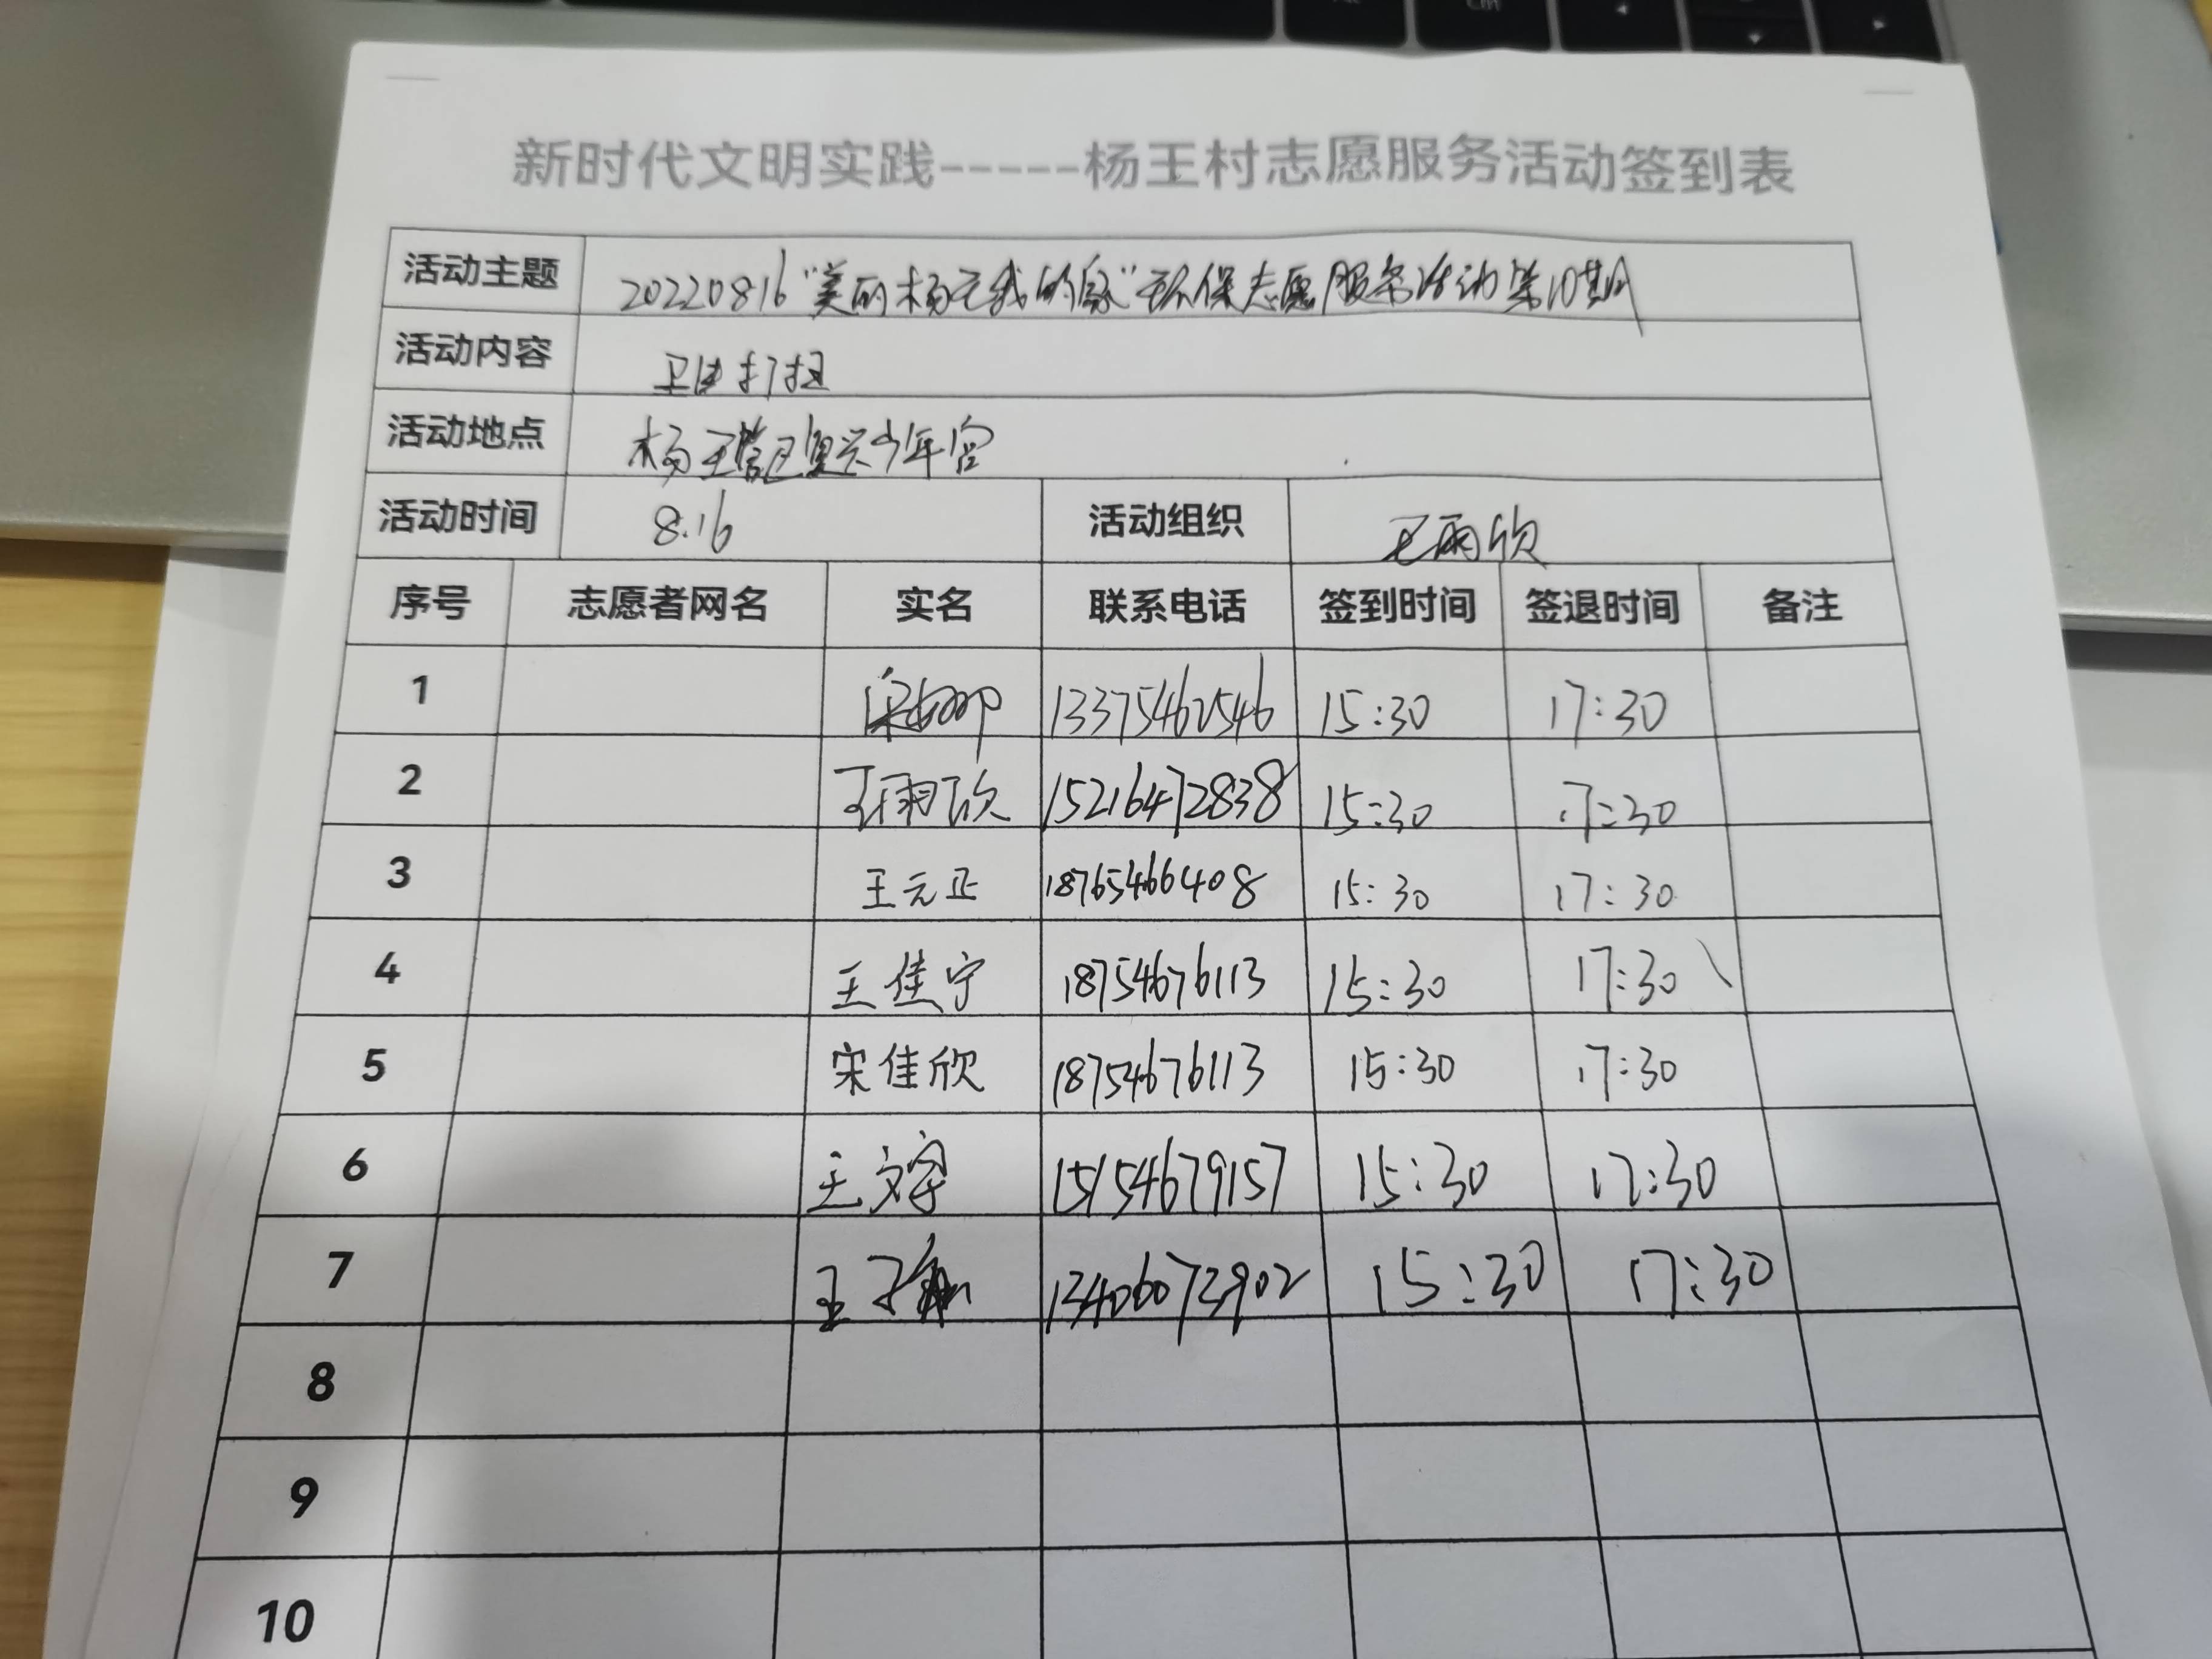 新时代文明实践-----杨王村志愿服务活动签到表
活动主题 20220816“美丽杨王我的家”环保志愿服务活动第10期
活动内容 卫生打扫
活动地点 杨王 复兴少年宫
活动时间 8.16 活动组织 王雨欣
序号 志愿者网名 实名 联系电话 签到时间 签退时间 备注
1 13375462546 15:30 17:30
2 王雨欣 15216472838 15:30 17:30
3 王元正 18765466408 15:30 17:30
4 王佳宁 18754676113 15:30 17:30
5 宋佳欣 18754676113 15:30 17:30
6 王文 15154679157 15:30 17:30
7 王子 13406073902 15:30 17:30
8
9
10